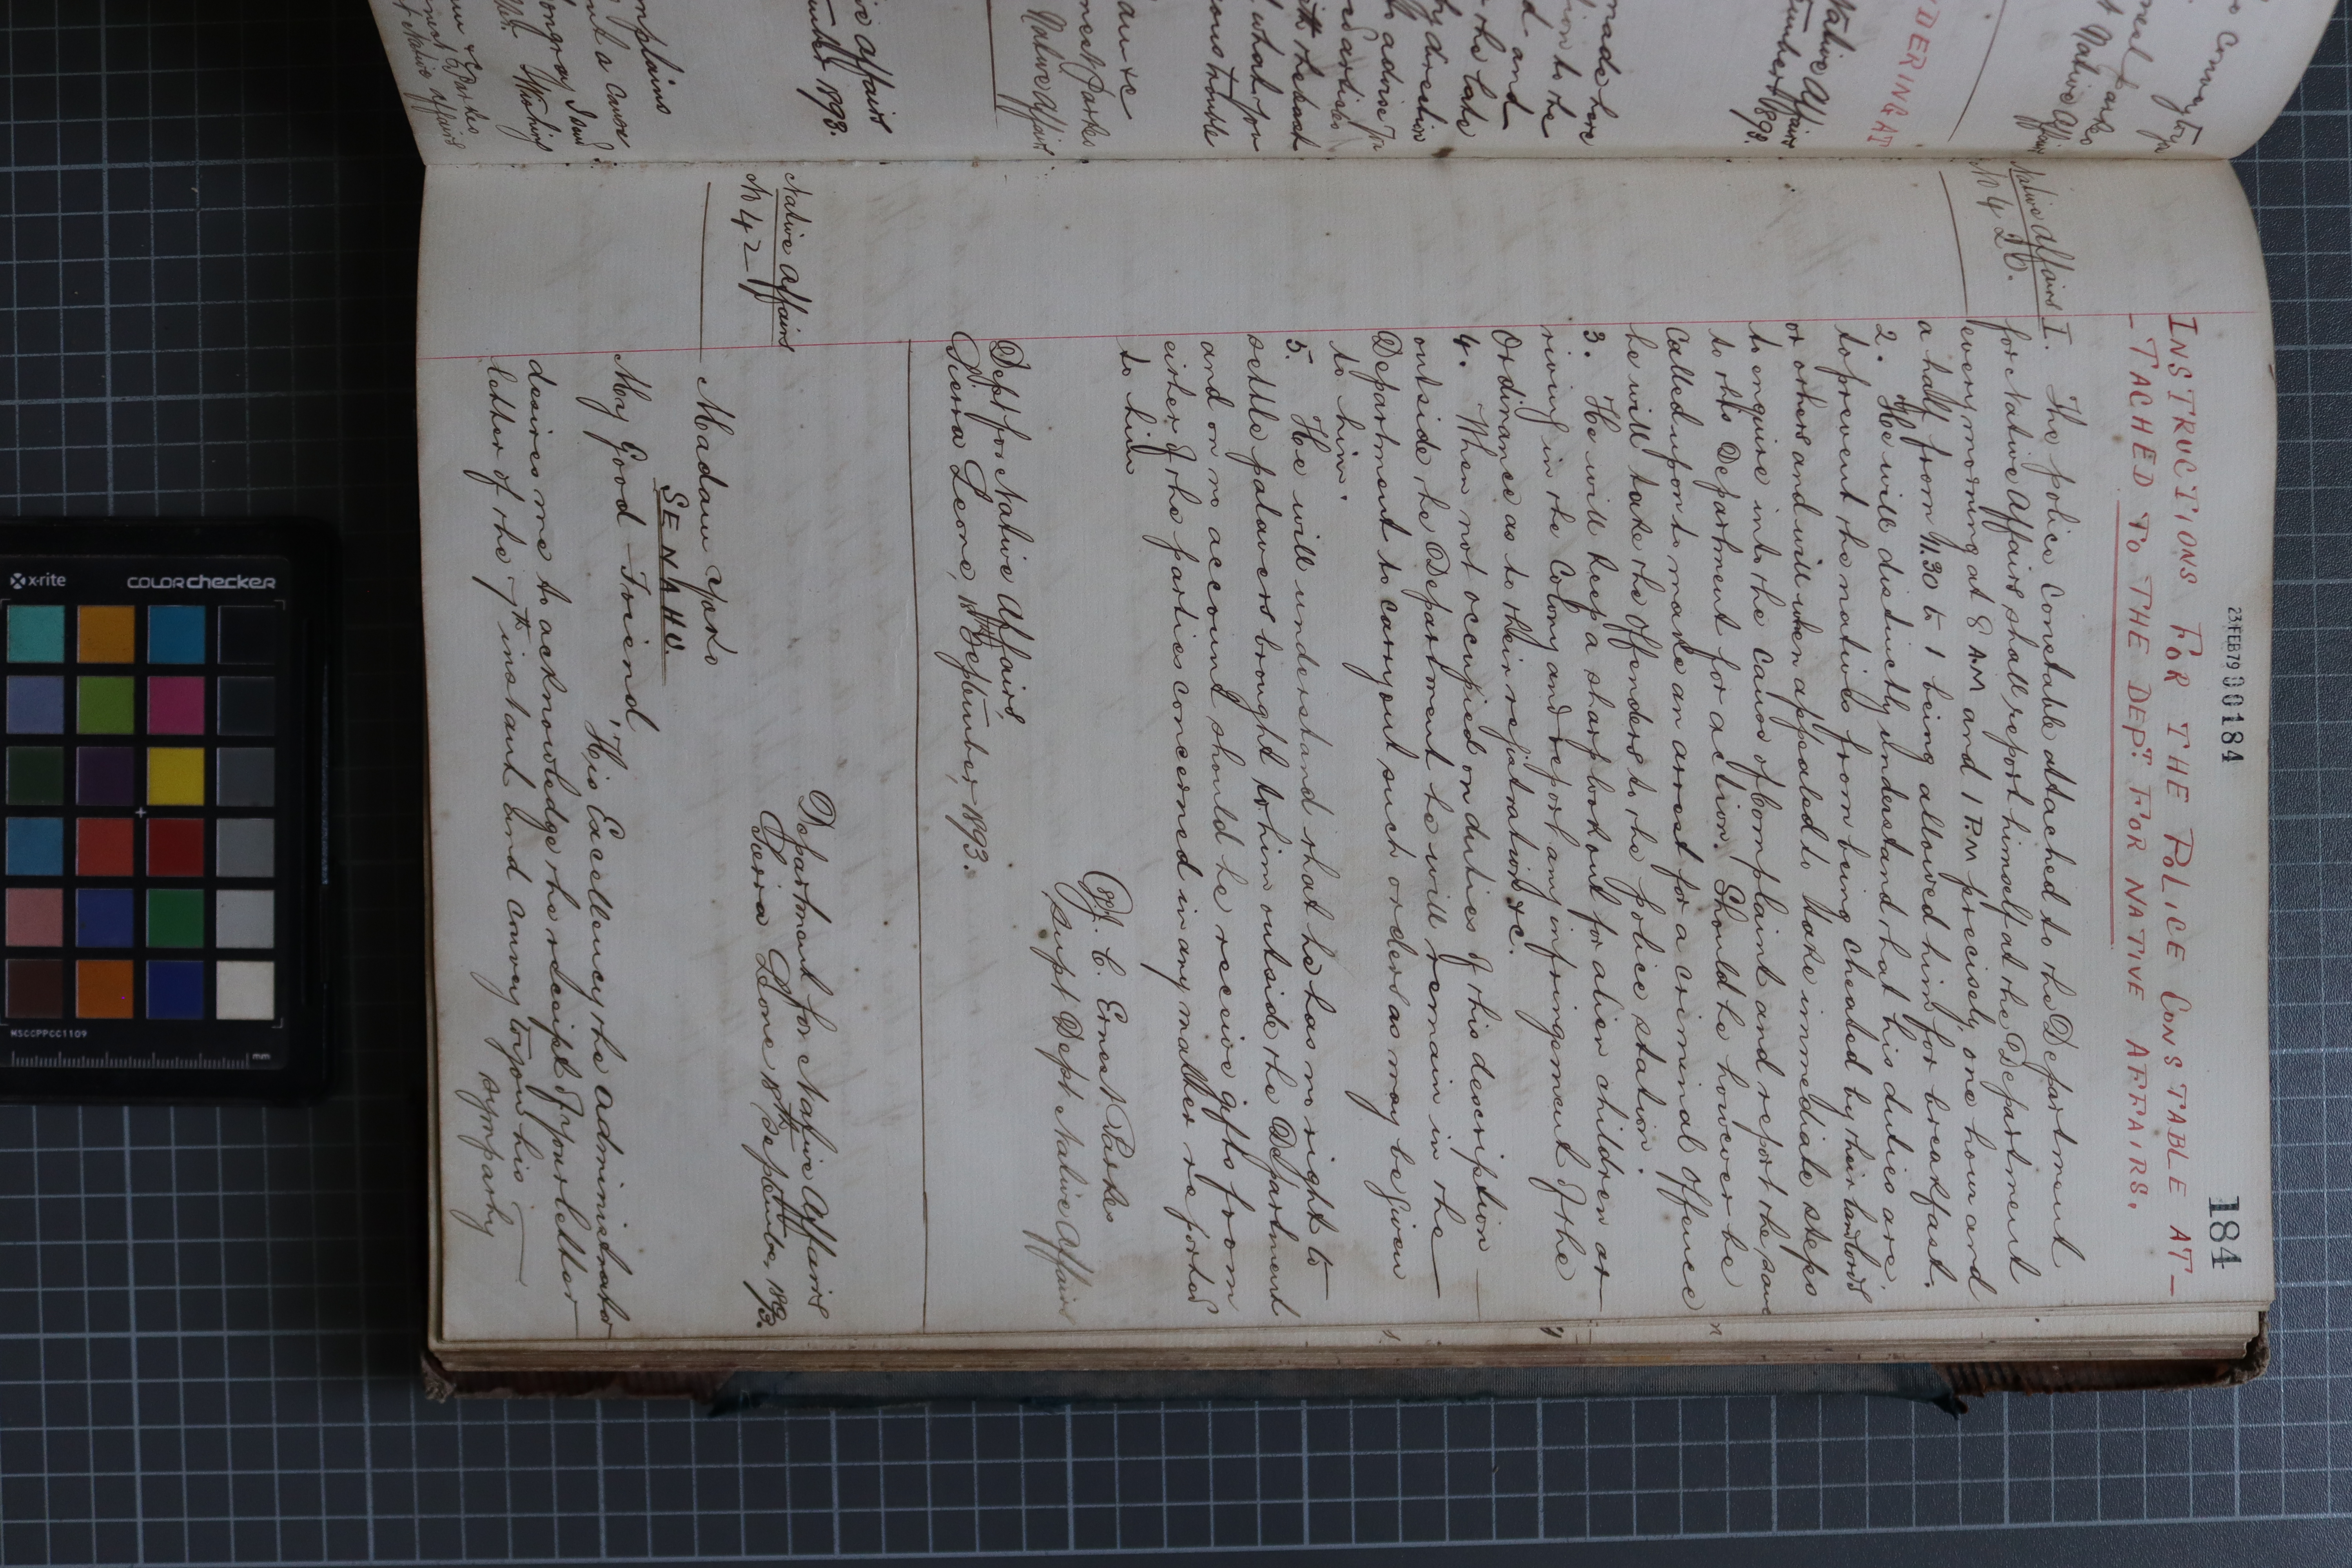 23 FEB 79 000184
184
INSTRUCTIONS FOR THE POLICE CONSTABLE AT-
-TACHED TO THE DEPT. FOR NATIVE AFFAIRS.
Native Affairs
No 426.
I. The police Constable attached to the Department
for Native Affairs shall report himself at the Department
every morning at 8 AM and 1 P.M precisely, one hour and
a half from 11.30 to 1 being allowed him for breakfast.
2. He will distinctly understand that his duties are,
to prevent the natives from being cheated by their landlords
or others and will when appealed to take immediate steps
to enquire into the cause of complaint and report the same
to this Department for action. Should he however be
Called upon to make an arrest for a criminal offence
he will take the offenders to the police station.
3. He will keep a sharp look out for alien children ar-
riving in the Colony and report any infringement of the
Ordinance as to their registration &c.
4. When not occupied on duties of this description
outside the Department he will remain in the
Department to carry out such orders as may be given
to him.
5. He will understand that he has no right to
settle palavers brought to him outside the Department
and on no account should he receive gifts from
either of the parties concerned in any matter reported
to him
(Sg) J. C. Ernest Parkes
Supt Dept Native Affairs
Dept for Native Affairs,
Sierra Leone, 18th September, 1893.
Native Affairs
No 427
Department for Native Affairs
Sierra Leone 18th September, 1893.
Madam Yoko
SENAHU
My Good Friend,
His Excellency the Administrator
desires me to acknowledge the receipt of your letter
letter of the 7th instant and convey to you his
sympathy
made here
Native Affairs
1893.
DERING AT
Native Affairs
complains
x-rite
COLORchecker
MSCCPPCC1109
mm